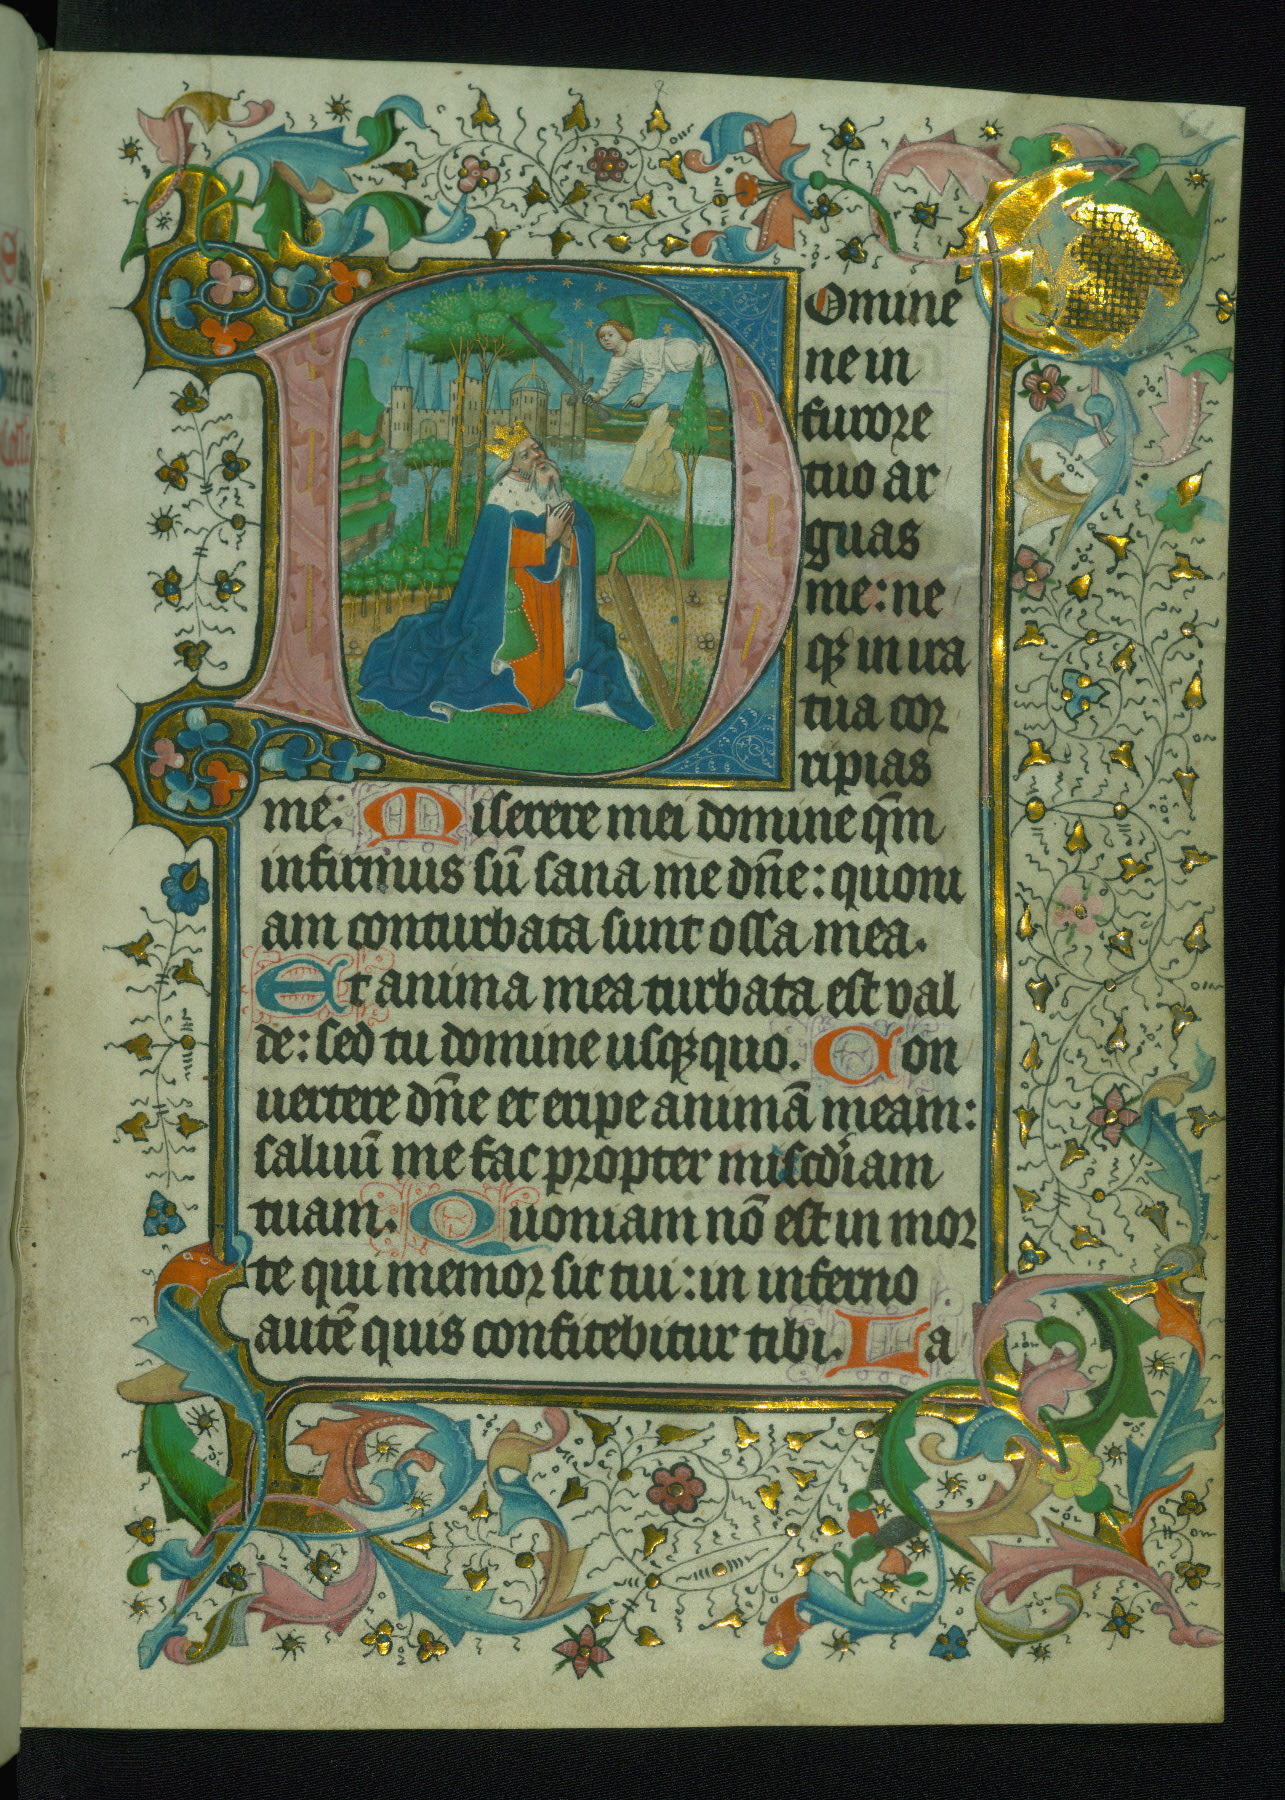 Domine
ne in
furore
tuo ar
guas
me: ne
qꝫ in ira
tua cor
ripias
me: Miserere mei domine qm̄
infirmus sū sana me dn̄e: quoni
am conturbata sunt ossa mea.
Et anima mea turbata est val
de: sed tu domine usqꝫ quo. Con
uertere dn̄e et eripe animā meam:
saluū me fac propter miscd̓iam
tuam. Quoniam nō est in mor
te qui memor sit tui: in inferno
autē quis confitebitur tibi. La